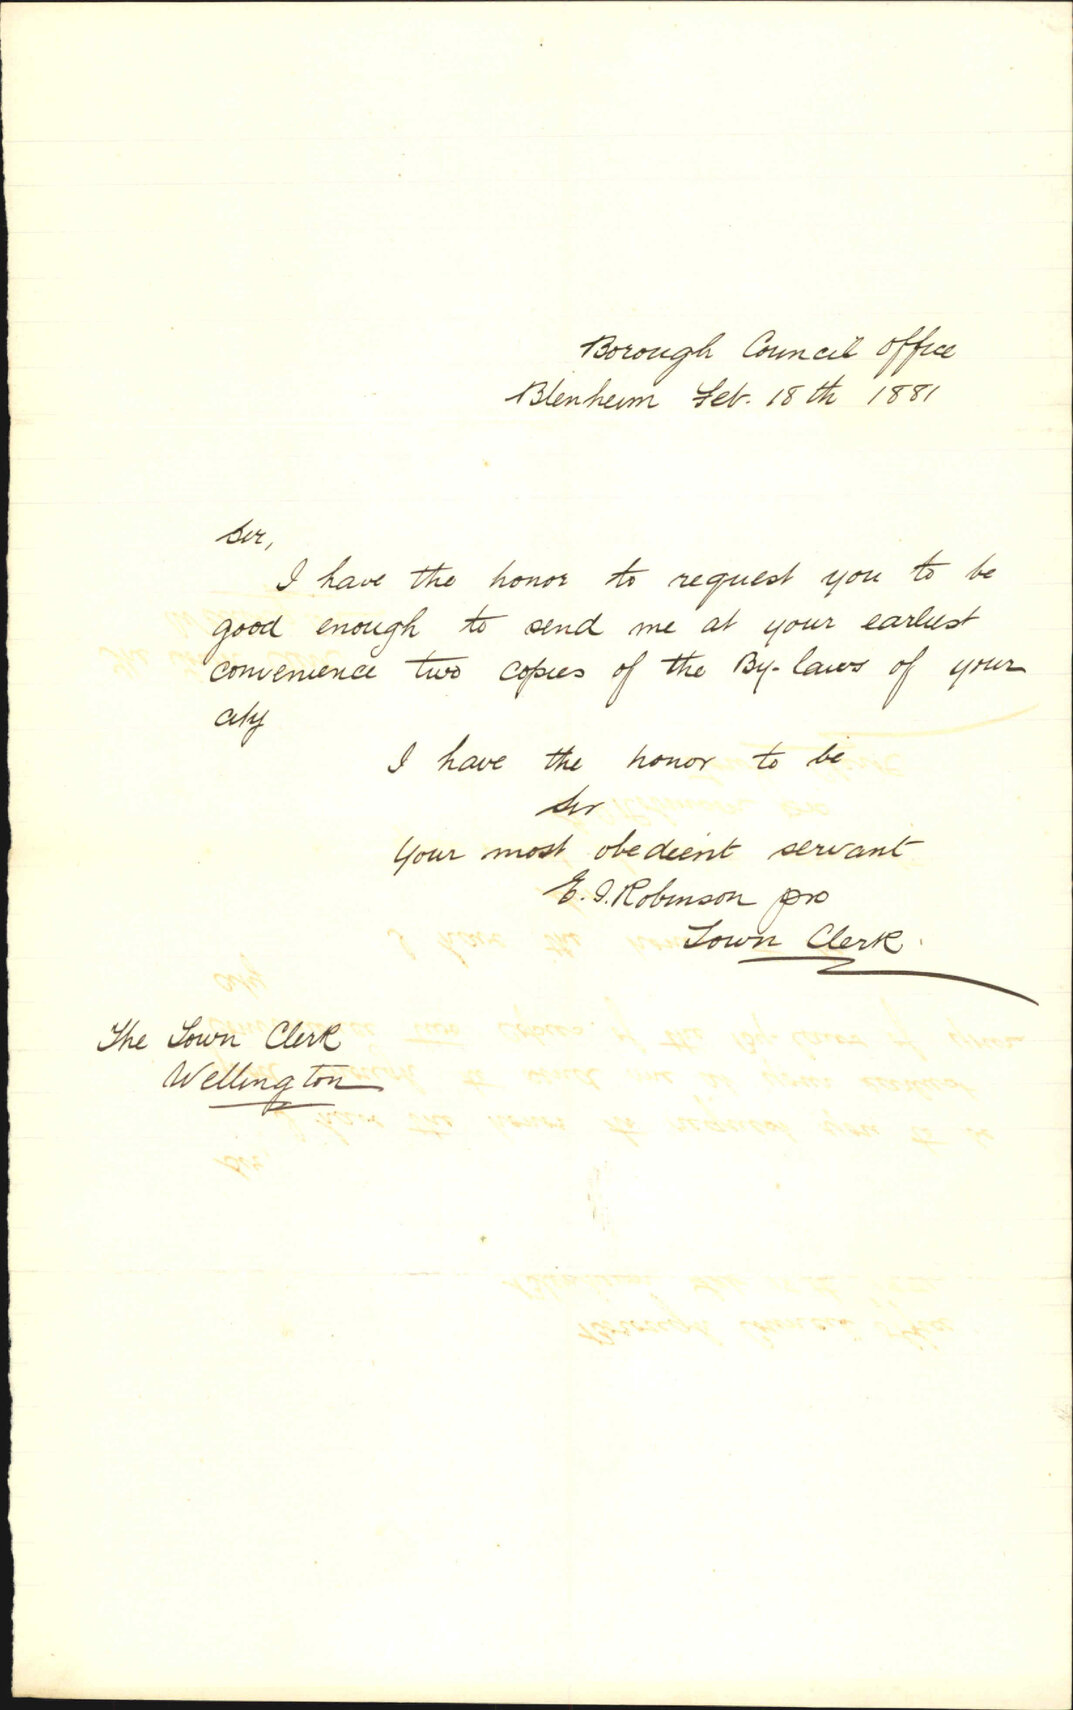 Borough Council Office
Blenheim Feb. 18th 1881
Sir,
I have the honor to request you to be
good enough to send me at your earliest
convenience two copies of the By-laws of your
city
I have the honor to be
Sir
Your most obedient servant
E. I. Robinson pro
Town Clerk.
The Town Clerk
Wellington